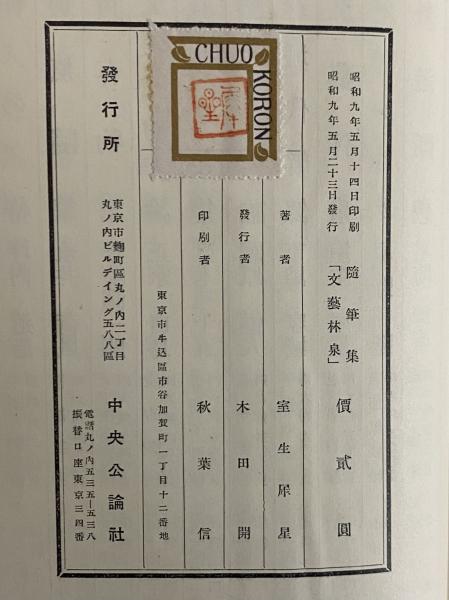 昭和九年五月十四日印刷
昭和九年五月二十三日發行
隨筆集
「文藝林泉」
價貳圓
著者 室生犀星
發行者 木田開
印刷者 秋葉信
東京市牛込區市谷加賀町一丁目十二番地
發行所
東京市麴町區丸ノ內二丁目
丸ノ內ビルデイング五八八區
中央公論社
電話丸ノ內五三五―五三八
振替口座東京三四番
CHUO
KORON